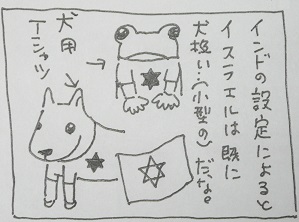 インドの設定によると
イスラエルは既に
犬扱い…(小型の)だな。
犬用
Tシャツ